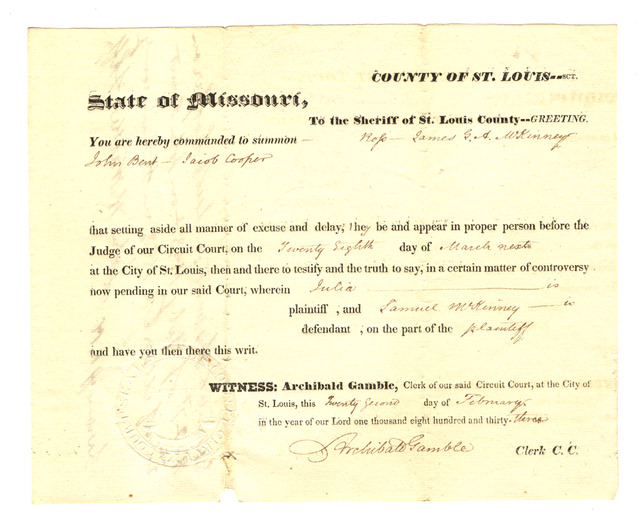 COUNTY OF ST. LOUIS--SCT.
State of Missouri,
To the Sheriff of St. Louis County--GREETING.
You are hereby commanded to summon — Ross — James G. A. McKinney
John Bent — Jacob Cooper
that setting aside all manner of excuse and delay, they be and appear in proper person before the
Judge of our Circuit Court, on the Twenty Eighth day of March next
at the City of St. Louis, then and there to testify and the truth to say, in a certain matter of controversy
now pending in our said Court, wherein Julia — is
plaintiff , and Samuel McKinney — is
defendant , on the part of the plaintiff
and have you then there this writ.
WITNESS: Archibald Gamble, Clerk of our said Circuit Court, at the City of
St. Louis, this Twenty Second day of February
in the year of our Lord one thousand eight hundred and thirty-three
Archibald Gamble Clerk C. C.